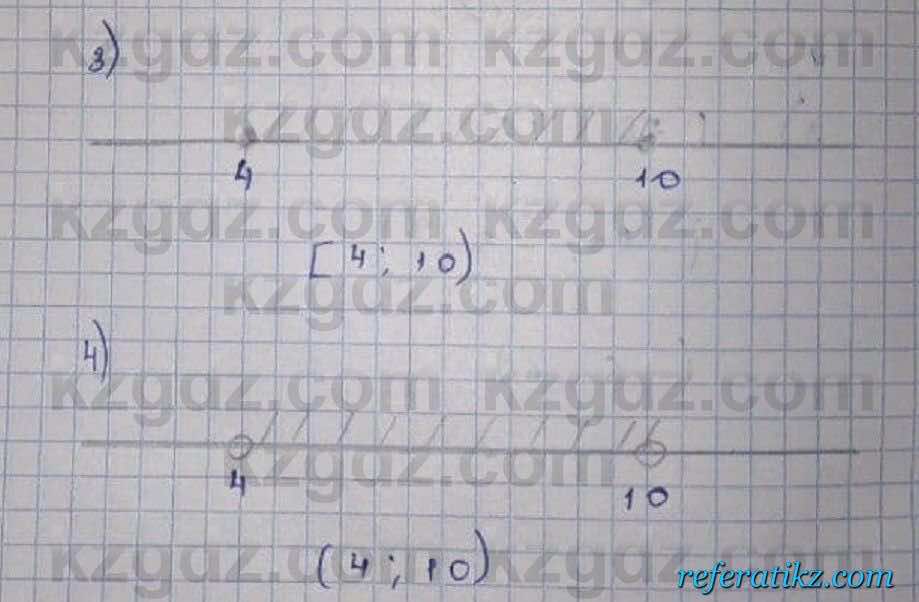 3)
4 10
[4; 10)
4)
4 10
(4; 10)
kzgdz.com kzgdz.com
kzgdz.com
kzgdz.com kzgdz.com
kzgdz.com
kzgdz.com kzgdz.com
kzgdz.com
kzgdz.com
referatikz.com